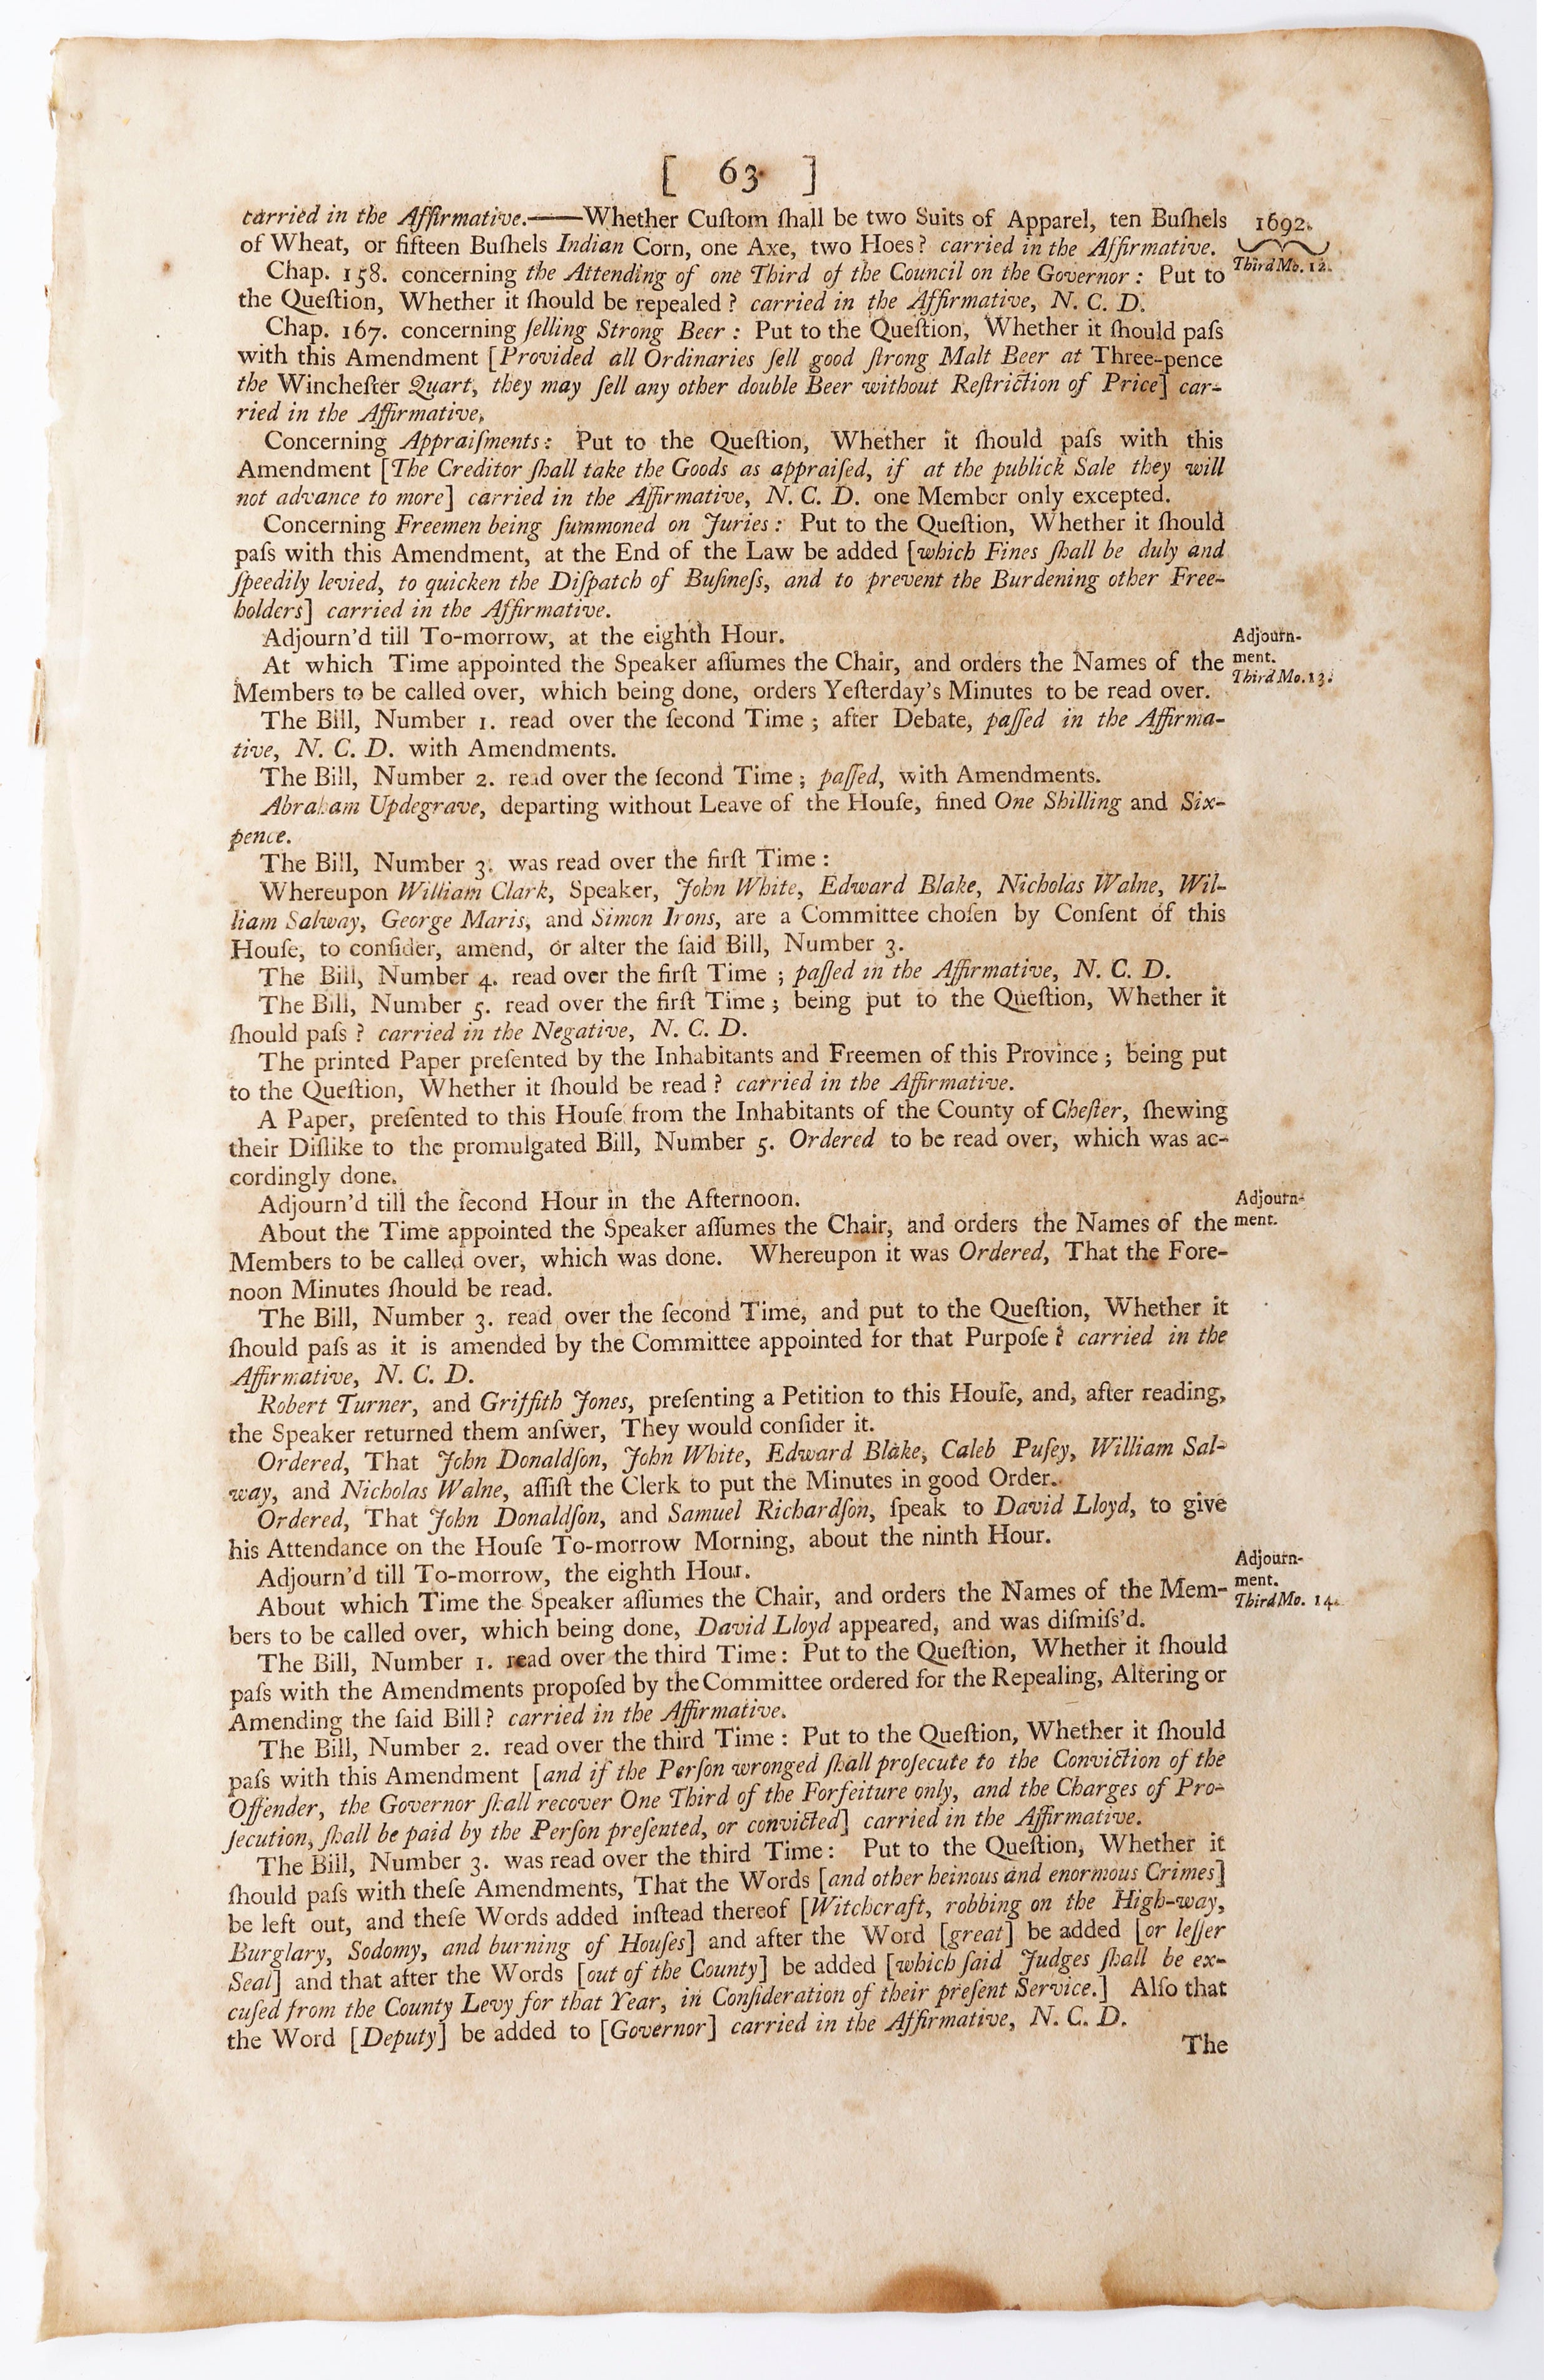 [ 63 ]
carried in the Affirmative.——Whether Cuſtom ſhall be two Suits of Apparel, ten Buſhels
1692.
of Wheat, or fifteen Buſhels Indian Corn, one Axe, two Hoes? carried in the Affirmative.
Third Mo. 12.
Chap. 158. concerning the Attending of one Third of the Council on the Governor: Put to
the Queſtion, Whether it ſhould be repealed? carried in the Affirmative, N. C. D.
Chap. 167. concerning ſelling Strong Beer: Put to the Queſtion, Whether it ſhould paſs
with this Amendment [Provided all Ordinaries ſell good ſtrong Malt Beer at Three-pence
the Wincheſter Quart, they may ſell any other double Beer without Reſtriction of Price] car-
ried in the Affirmative.
Concerning Appraiſments: Put to the Queſtion, Whether it ſhould paſs with this
Amendment [The Creditor ſhall take the Goods as appraiſed, if at the publick Sale they will
not advance to more] carried in the Affirmative, N. C. D. one Member only excepted.
Concerning Freemen being ſummoned on Juries: Put to the Queſtion, Whether it ſhould
paſs with this Amendment, at the End of the Law be added [which Fines ſhall be duly and
ſpeedily levied, to quicken the Diſpatch of Buſineſs, and to prevent the Burdening other Free-
holders] carried in the Affirmative.
Adjourn'd till To-morrow, at the eighth Hour.
Adjourn-
At which Time appointed the Speaker aſſumes the Chair, and orders the Names of the
ment.
Third Mo. 13.
Members to be called over, which being done, orders Yeſterday's Minutes to be read over.
The Bill, Number 1. read over the ſecond Time; after Debate, paſſed in the Affirma-
tive, N. C. D. with Amendments.
The Bill, Number 2. read over the ſecond Time; paſſed, with Amendments.
Abraham Updegrave, departing without Leave of the Houſe, fined One Shilling and Six-
pence.
The Bill, Number 3. was read over the firſt Time:
Whereupon William Clark, Speaker, John White, Edward Blake, Nicholas Walne, Wil-
liam Salway, George Maris, and Simon Irons, are a Committee choſen by Conſent of this
Houſe, to conſider, amend, or alter the ſaid Bill, Number 3.
The Bill, Number 4. read over the firſt Time; paſſed in the Affirmative, N. C. D.
The Bill, Number 5. read over the firſt Time; being put to the Queſtion, Whether it
ſhould paſs? carried in the Negative, N. C. D.
The printed Paper preſented by the Inhabitants and Freemen of this Province; being put
to the Queſtion, Whether it ſhould be read? carried in the Affirmative.
A Paper, preſented to this Houſe from the Inhabitants of the County of Cheſter, ſhewing
their Diſlike to the promulgated Bill, Number 5. Ordered to be read over, which was ac-
cordingly done.
Adjourn'd till the ſecond Hour in the Afternoon.
Adjourn-
About the Time appointed the Speaker aſſumes the Chair, and orders the Names of the
ment.
Members to be called over, which was done. Whereupon it was Ordered, That the Fore-
noon Minutes ſhould be read.
The Bill, Number 3. read over the ſecond Time, and put to the Queſtion, Whether it
ſhould paſs as it is amended by the Committee appointed for that Purpoſe? carried in the
Affirmative, N. C. D.
Robert Turner, and Griffith Jones, preſenting a Petition to this Houſe, and, after reading,
the Speaker returned them anſwer, They would conſider it.
Ordered, That John Donaldſon, John White, Edward Blake, Caleb Puſey, William Sal-
way, and Nicholas Walne, aſſiſt the Clerk to put the Minutes in good Order.
Ordered, That John Donaldſon, and Samuel Richardſon, ſpeak to David Lloyd, to give
his Attendance on the Houſe To-morrow Morning, about the ninth Hour.
Adjourn'd till To-morrow, the eighth Hour.
Adjourn-
ment.
About which Time the Speaker aſſumes the Chair, and orders the Names of the Mem-
Third Mo. 14.
bers to be called over, which being done, David Lloyd appeared, and was diſmiſs'd.
The Bill, Number 1. read over the third Time: Put to the Queſtion, Whether it ſhould
paſs with the Amendments propoſed by the Committee ordered for the Repealing, Altering or
Amending the ſaid Bill? carried in the Affirmative.
The Bill, Number 2. read over the third Time: Put to the Queſtion, Whether it ſhould
paſs with this Amendment [and if the Perſon wronged ſhall proſecute to the Conviction of the
Offender, the Governor ſhall recover One Third of the Forfeiture only, and the Charges of Pro-
ſecution, ſhall be paid by the Perſon preſented, or convicted] carried in the Affirmative.
The Bill, Number 3. was read over the third Time: Put to the Queſtion, Whether it
ſhould paſs with theſe Amendments, That the Words [and other heinous and enormous Crimes]
be left out, and theſe Words added inſtead thereof [Witchcraft, robbing on the High-way,
Burglary, Sodomy, and burning of Houſes] and after the Word [great] be added [or leſſer
Seal] and that after the Words [out of the County] be added [which ſaid Judges ſhall be ex-
cuſed from the County Levy for that Year, in Conſideration of their preſent Service.] Alſo that
the Word [Deputy] be added to [Governor] carried in the Affirmative, N. C. D.
The